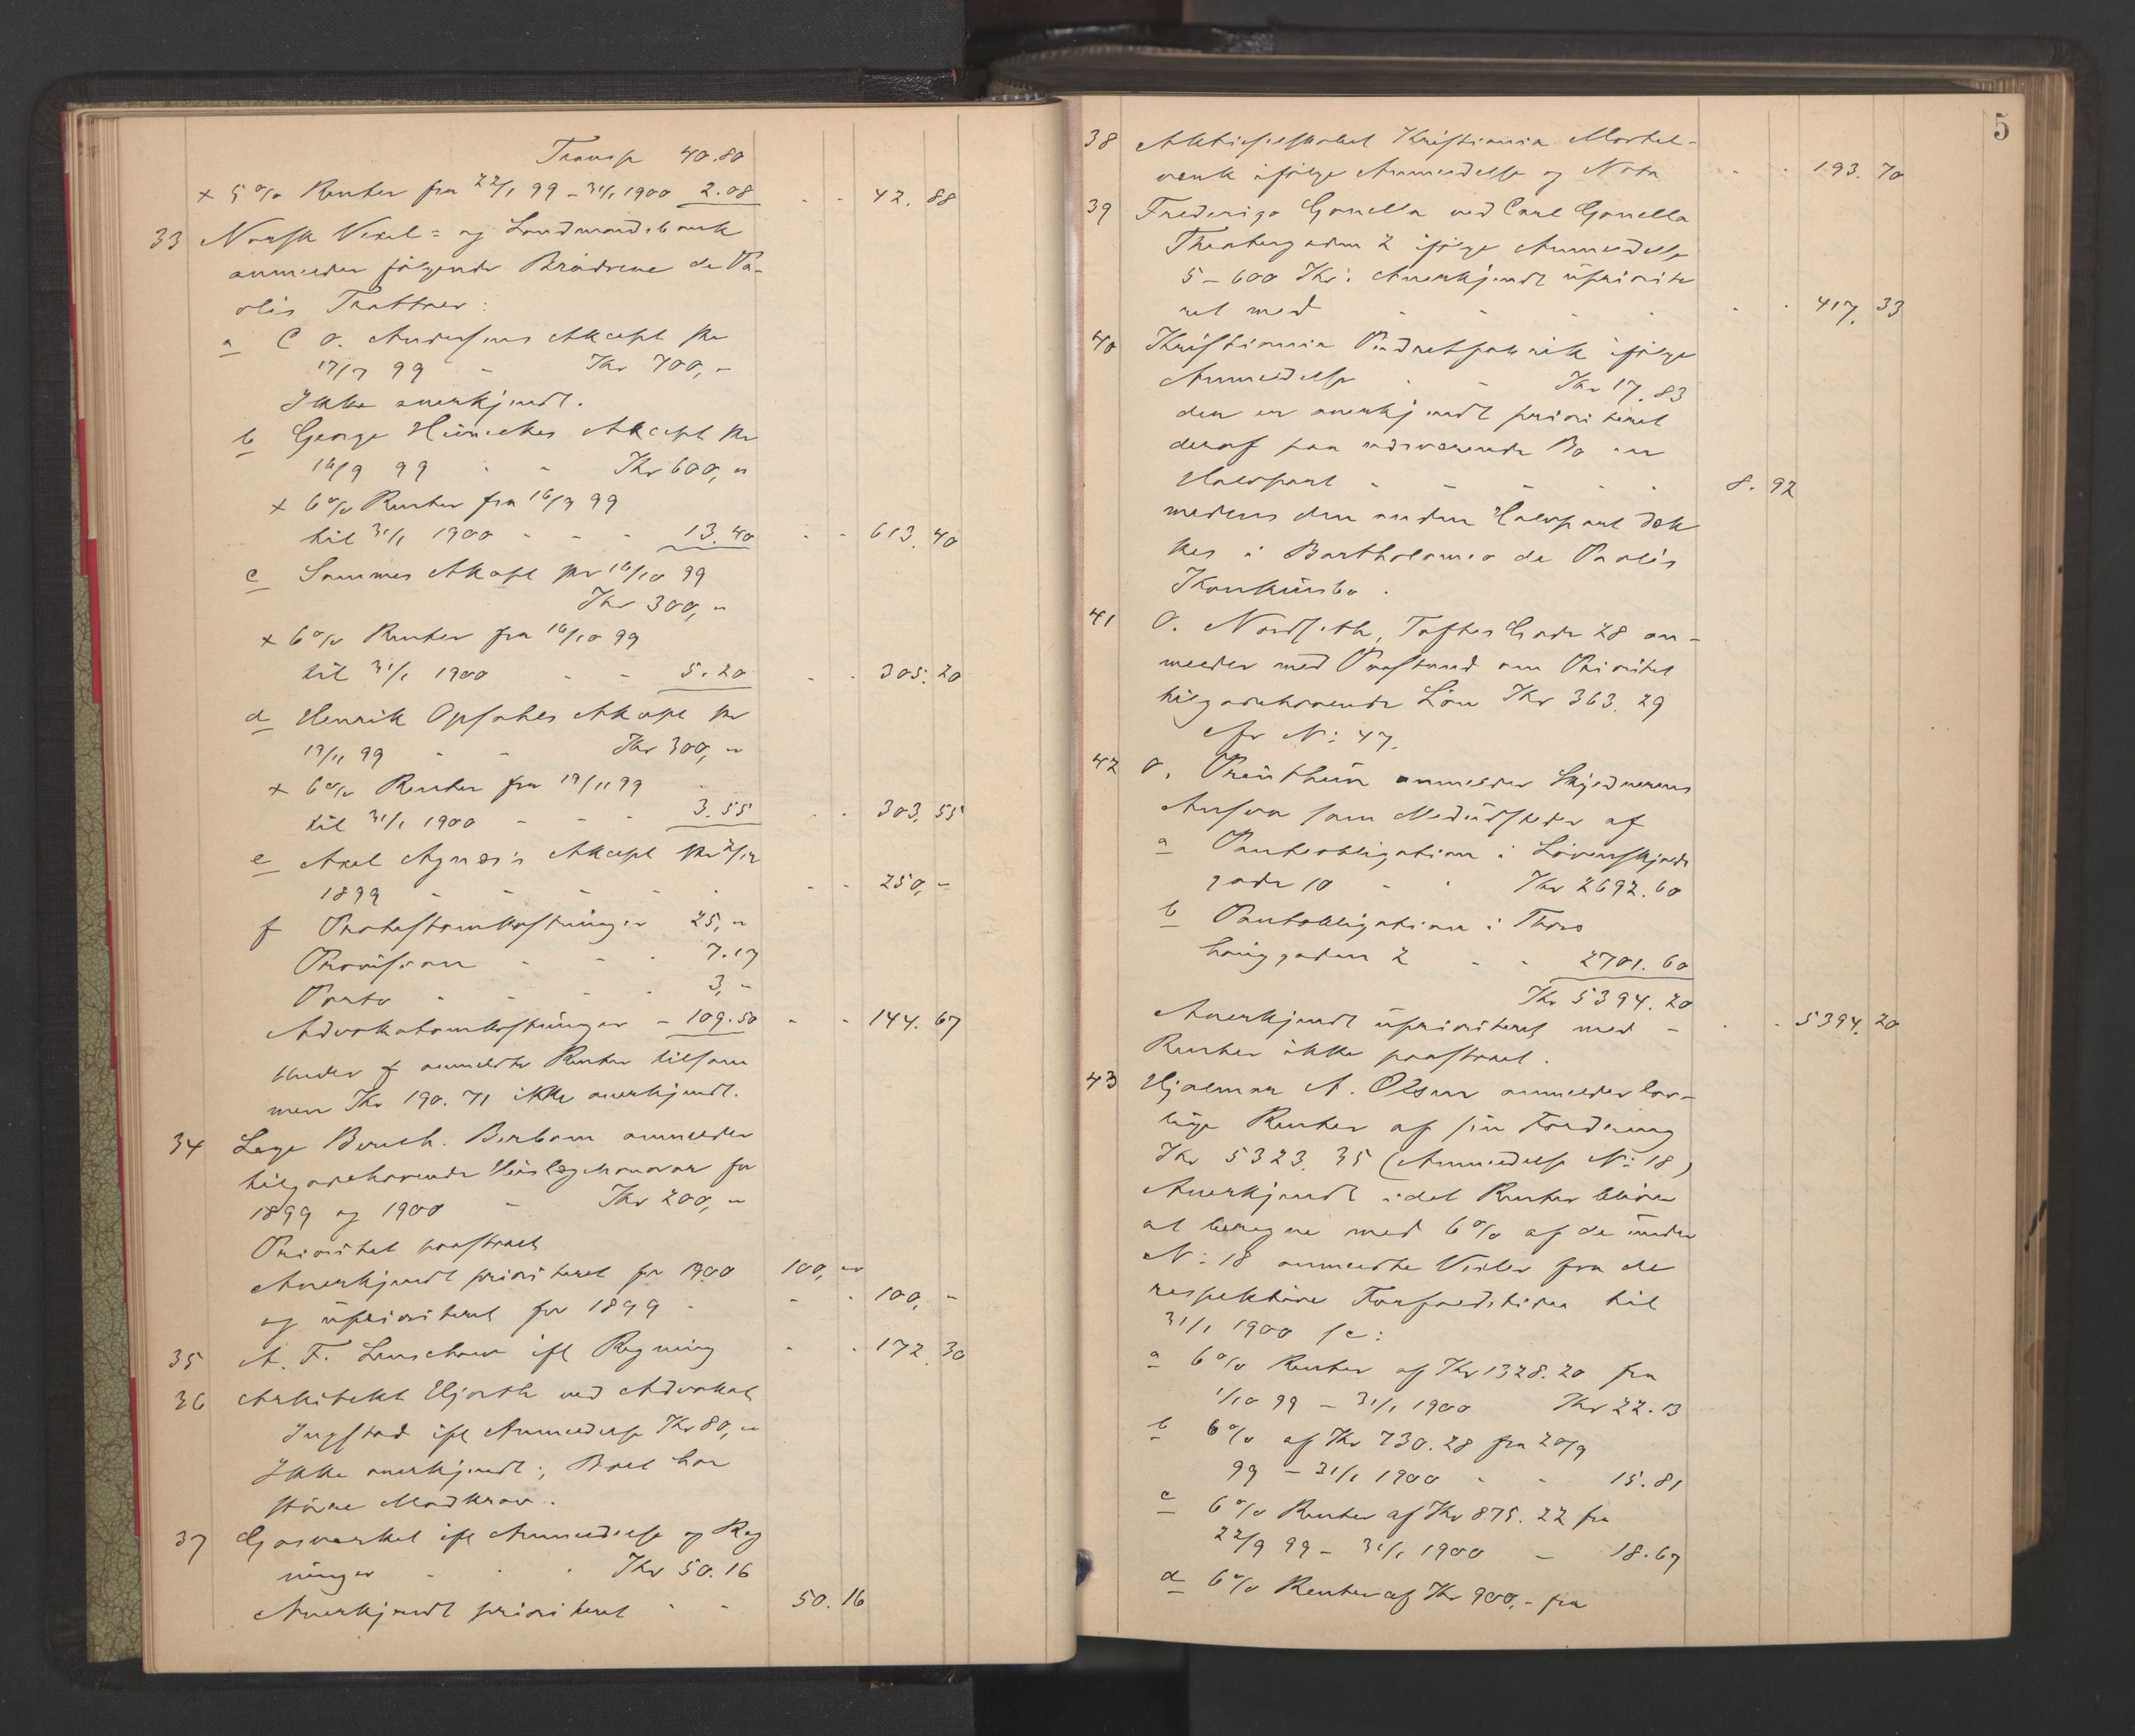 Transp 40.80
+ 5 % Renter fra 22/1 99 – 31/1 1900 2.08 - - 42. 88
33 Norsk Vexel= og Landmandsbank
anmelder følgende Brødrene de Pa-
olis Tratter:
a C O. Andersens Akcept pr
17/7 99 - Kr 700, "
Ikke anerkjendt.
b George Hünickes Akcept pr
16/9 99 - - Kr 600, "
+ 6 % Renter fra 16/9 99
til 31/1 1900 - - - 13.40 - - 613. 40
c Sammes Akcept pr 16/10 99
Kr 300, "
+ 6 % Renter fra 16/10 99
til 31/1 1900 - - 5.20 - - 305. 20
d Henrik Opsahls Akcept pr
19/11 99 - - Kr 300, "
+ 6 % Renter fra 19/11 99
til 31/1 1900 - - - 3.55 - - 303. 55
e Axel Agnæs's Akcept pr
1899 - - - - - - - 250, "
f Protestomkostninger 25, "
Provision - - - 7.17
Porto - - - - 3, "
Advokatomkostninger - 109.50 - - 144. 67
Under f anmeldte Renter tilsam
men Kr 190.71 ikke anerkjendt.
34 Læge Bernh. Berbom anmelder
tilgodehavende Huslægehonorar for
1899 og 1900 - Kr 200, "
Prioritet paastaaet
Anerkjendt prioriteret for 1900 100, "
og uprioriteret for 1899 - - - 100, "
35 A. F. Lenschow ifl Regning - - 172. 30
36 Arkitekt Hjorth ved Advokat
Ingstad ifl Anmeldelse Kr 80, "
Ikke anerkjendt; Boet har
større Modkrav.
37 Gasverket ifl Anmeldelse og Reg
ninger - - - Kr 50.16
Anerkjendt prioriteret - - 50. 16
5
38 Aktieselskabet Kristiania Mørtel-
værk ifølge Anmeldelse og Nota - - 193. 70
39 Frederigo Gonella ved Carl Gonella
Theatergaden 2 ifølge Anmeldelse
5 – 600 Kr. Anerkjendt upriorite
ret med - - - - - - 417. 33
40 Kristiania Pudretfabrik ifølge
Anmeldelse - - Kr 17.83
der er anerkjendt prioriteret
deraf paa nærværende Bo en
Halvpart - - - - - 8. 92
medens den anden Halvpart dæk
kes i Bartholomeo de Paolis
Konkursbo.
41 O. Nordseth, Toftes Gade 28 an-
melder med Paastand om Prioritet
tilgodehavende Løn Kr 363.29
cfr No: 47.
42 O. anmelder Skyldnerens
Ansvar som Medudsteder af
a Panteobligation i Løvenskjolds
gade 10 - - Kr 2692.60
b Pantobligation i Thors
haug gaden 2 - - 2701.60
Kr 5394.20
Anerkjendt uprioriteret med - - - 5394. 20
Renter ikke paastaaet.
43 Hjalmar A. Olsen anmelder lov-
lige Renter af sin Fordring
Kr 5323.35 (Anmeldelse No: 18)
Anerkjendt idet Renter bliver
at beregne med 6 % af de under
No: 18 anmeldte Vexler fra de
respektive Forfaldstider til
31/1 1900 sc:
a 6 % Renter af Kr 1328.20 fra
1/10 99 – 31/1 1900 Kr 22.13
b 6 % af Kr 730.28 fra 20/9
99 – 31/1 1900 - - 15.81
c 6 % Renter af Kr 875.22 fra
22/9 99 – 31/1 1900 - 18.67
d 6 % Renter af Kr 900, - fra